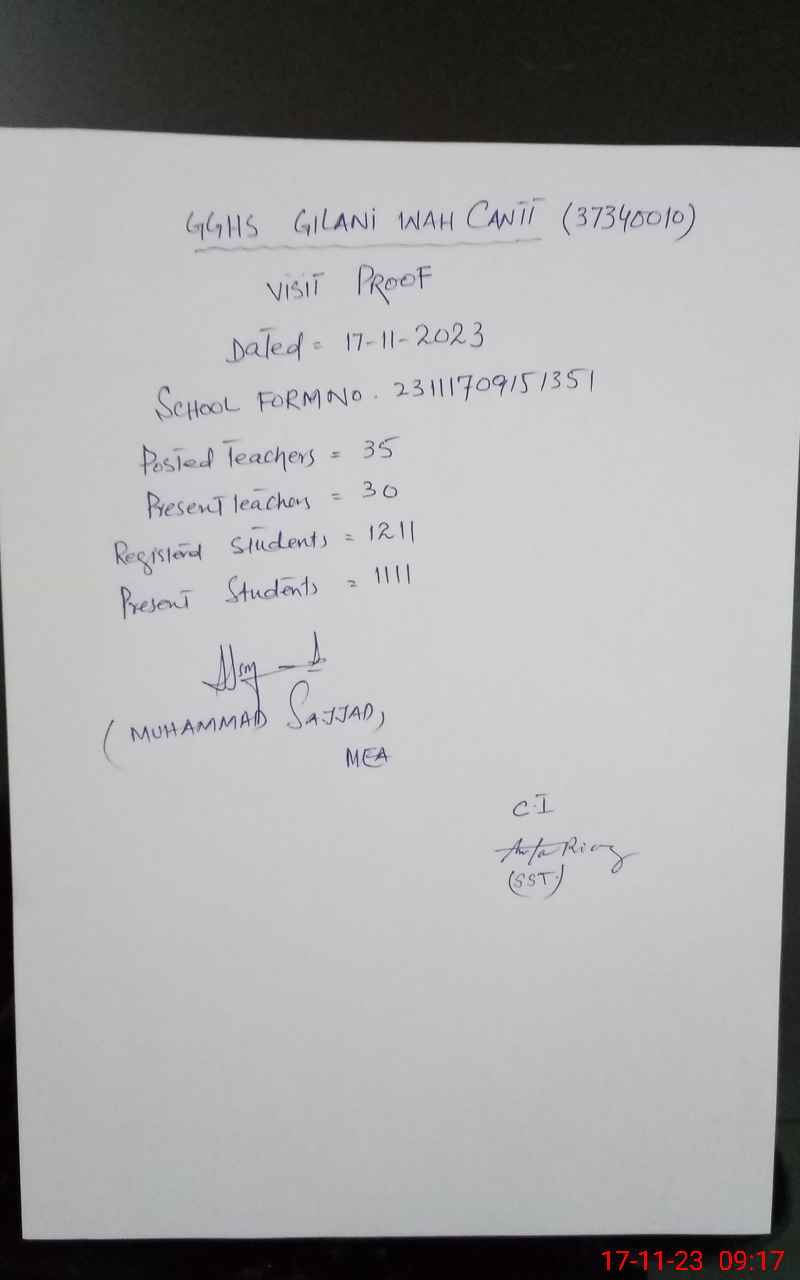 GGHS GILANI WAH CANTT (37340010)
VISIT PROOF
Dated = 17-11-2023
SCHOOL FORM NO. 23111709151351
Posted Teachers = 35
Present Teachers = 30
Registered Students = 1211
Present Students = 1111
(MUHAMMAD SAJJAD)
MEA
C.I
Riaz
(SST)
17-11-23 09:17